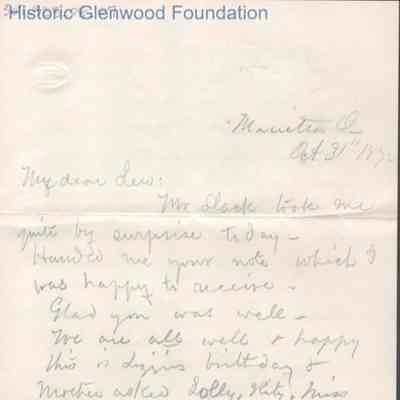 Historic Glenwood Foundation
Marietta O
Oct 31st 187
My dear Lew:
Mr Slack took me
quite by surprise today -
Handed me your note which I
was happy to receive -
Glad you was well -
We are all well & happy
this is Lizzies birthday &
Mother asked Lolly, Kitz, Miss